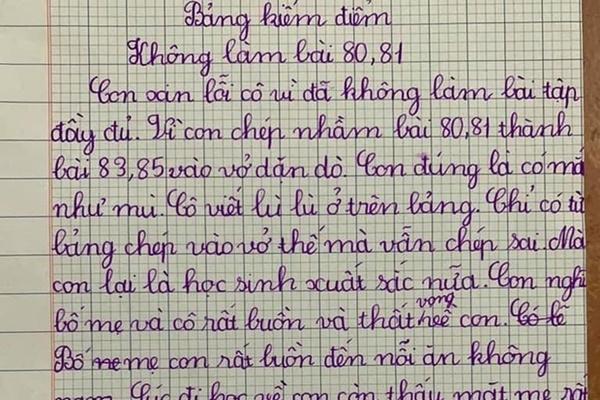 Bảng kiểm điểm
Không làm bài 80,81
Con xin lỗi cô vì đã không làm bài tập
đầy đủ. Vì con chép nhầm bài 80,81 thành
bài 83,85 vào vở dặn dò. Con đúng là có mắ
như mù. Cô viết lù lù ở trên bảng. Chỉ có từ
bảng chép vào vở thế mà vẫn chép sai. Mà
con lại là học sinh xuất sắc nữa. Con nghĩ
bố mẹ và cô rất buồn và thất vọng về con. Có lẽ
Bố mẹ con rất buồn đến nỗi ăn không
Lúc đi học về con còn thấy mặt mẹ rất